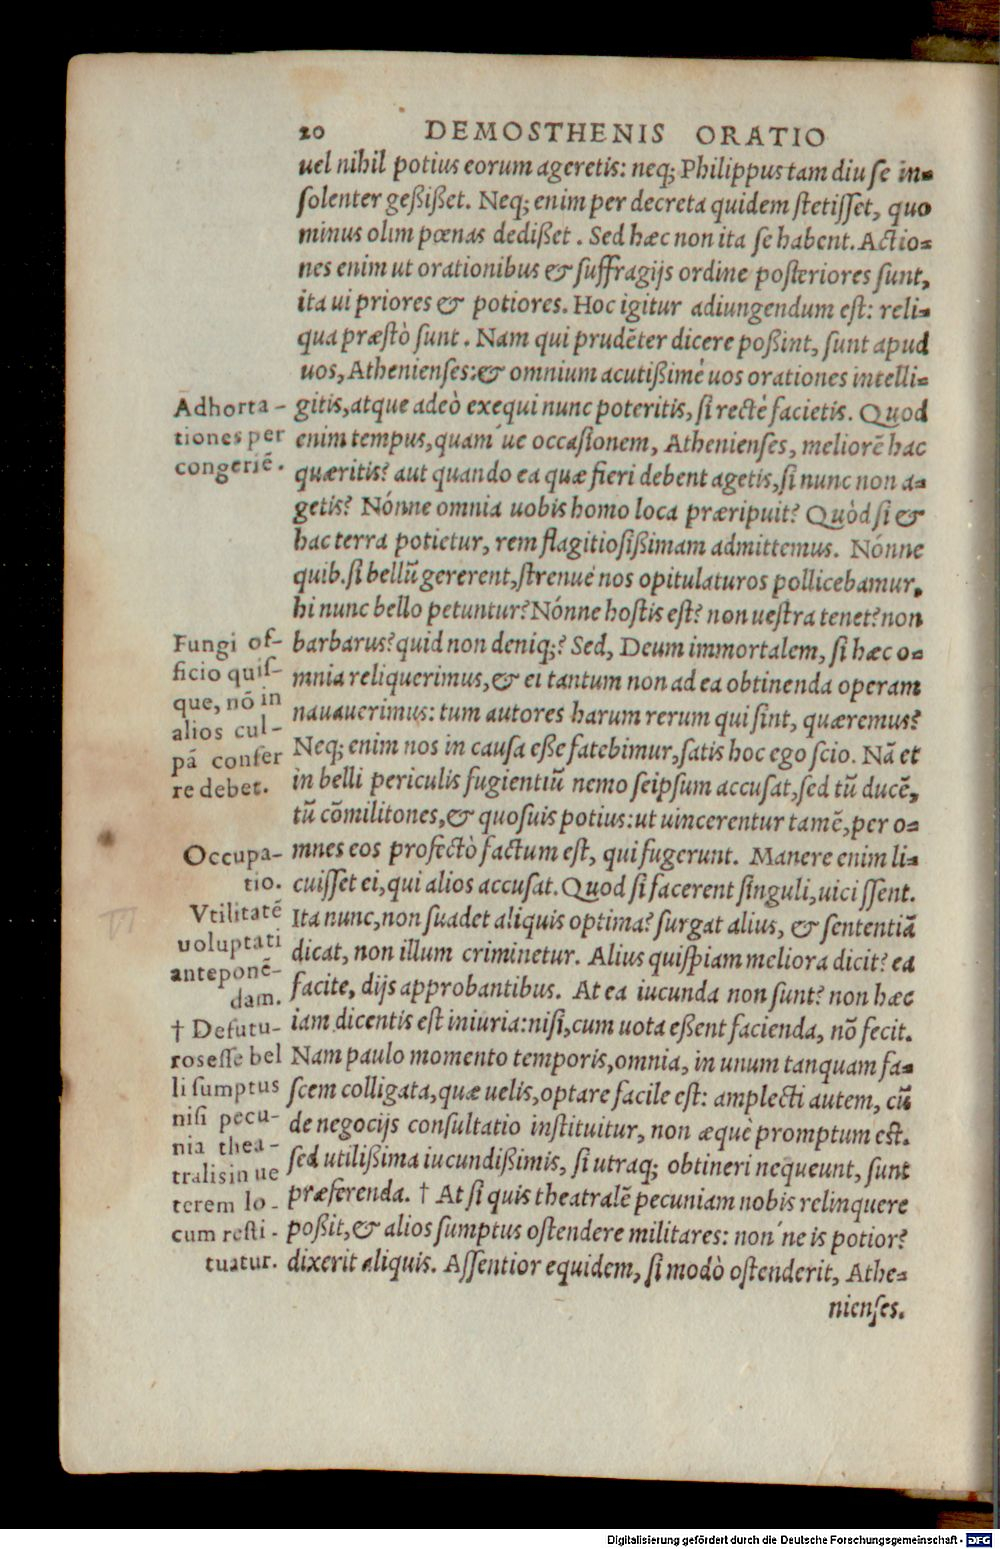 20 DEMOSTHENIS ORATIO
uel nihil potius eorum ageretis: neq; Philippus tam diu se in-
solenter geßißet. Neq; enim per decreta quidem stetisset, quo
minus olim pœnas dedißet. Sed hæc non ita se habent. Actio-
nes enim ut orationibus & suffragijs ordine posteriores sunt,
ita ui priores & potiores. Hoc igitur adiungendum est: reli-
qua præstò sunt. Nam qui prudẽter dicere poßint, sunt apud
uos, Athenienses: & omnium acutißimè uos orationes intelli-
gitis, atque adeò exequi nunc poteritis, si rectè facietis. Quod
enim tempus, quam´ue occasionem, Athenienses, meliorẽ hac
quæritis? aut quando ea quæ fieri debent agetis, si nunc non a-
getis? Nónne omnia uobis homo loca præripuit? Quòd si &
hac terra potietur, rem flagitiosißimam admittemus. Nónne
quib. si bellũ gererent, strenuè nos opitulaturos pollicebamur,
hi nunc bello petuntur? Nónne hostis est? non uestra tenet? non
barbarus? quid non deniq;? Sed, Deum immortalem, si hæc o-
mnia reliquerimus, & ei tantum non ad ea obtinenda operam
nauauerimus: tum autores harum rerum qui sint, quæremus?
Neq; enim nos in causa eße fatebimur, satis hoc ego scio. Nã et
in belli periculis fugientiũ nemo seipsum accusat, sed tũ ducẽ,
tũ cõmilitones, & quosuis potius: ut uincerentur tamẽ, per o-
mnes eos profectò factum est, qui fugerunt. Manere enim li-
cuisset ei, qui alios accusat. Quod si facerent singuli, uicissent.
Ita nunc, non suadet aliquis optima? surgat alius, & sententiã
dicat, non illum criminetur. Alius quispiam meliora dicit? ea
facite, dijs approbantibus. At ea iucunda non sunt? non hæc
iam dicentis est iniuria: nisi, cum uota eßent facienda, nõ fecit.
Nam paulo momento temporis, omnia, in unum tanquam fa-
scem colligata, quæ uelis, optare facile est: amplecti autem, cũ
de negocijs consultatio instituitur, non æquè promptum est.
sed utilißima iucundißimis, si utraq; obtineri nequeunt, sunt
præferenda. † At si quis theatralẽ pecuniam nobis relinquere
poßit, & alios sumptus ostendere militares: non´ne is potior?
dixerit aliquis. Assentior equidem, si modò ostenderit, Athe-
nienses.
Adhorta-
tiones per
congeriẽ.
Fungi of-
ficio quis-
que, nõ in
alios cul-
pã confer
re debet.
Occupa-
tio.
Vtilitatẽ
uoluptati
anteponẽ-
dam.
† Defutu-
ros esse bel
li sumptus
nisi pecu-
nia thea-
tralis in ue
terem lo-
cum resti-
tuatur.
VI
Digitalisierung gefördert durch die Deutsche Forschungsgemeinschaft - DFG